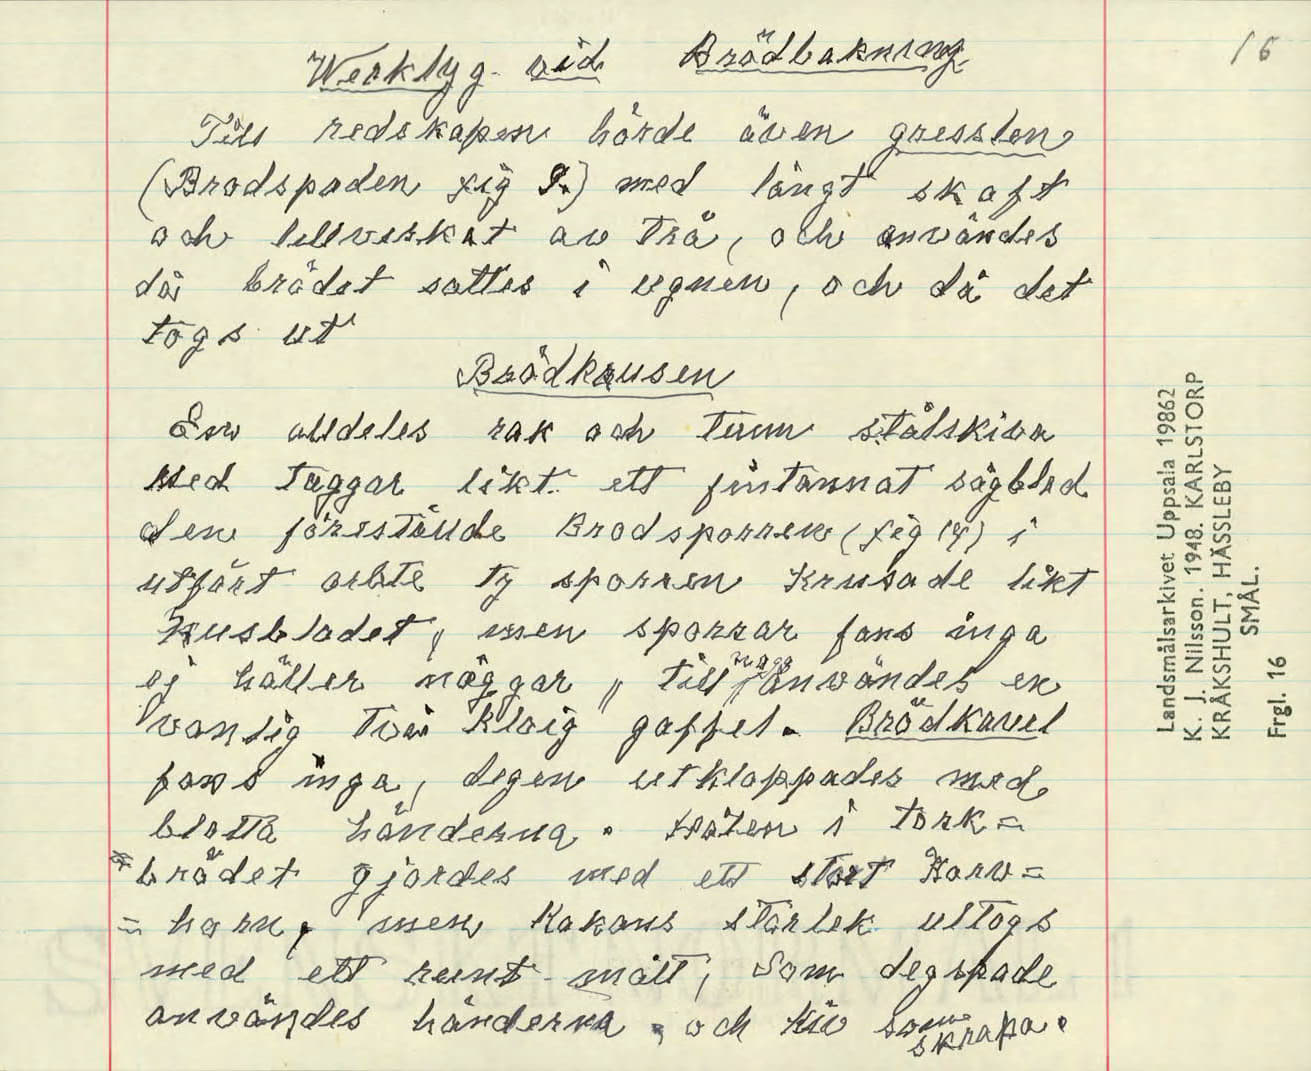 16
Werktyg vid Brödbakning
Till redskapen hörde även gresslen
(Brodspaden fig 9.) med långt skaft
och tillverkat av Trä, och användes
då brödet sattes i ugnen, och då det
togs ut
Brödkrusen
En alldeles rak och tunn stålskiva
med taggar likt ett fintannat sågblad
den förestälde Brodsporren (fig 14) i
utfört arbte ty sporren Krusade likt
Kusbladet, men sporrar fans inga
ej häller naggar, till nagg användes en
vanlig två kloig gaffel. Brödkavel
fans inga, degen utklappades med
blotta händerna. Hålen i tork=
brödet gjordes med ett stort Korv=
=horn, men Kakans storlek uttogs
med ett runt mått, Som degspade
användes händerna, och kniv som
skrapa.
Landsmålsarkivet Uppsala 19862
K. J. Nilsson. 1948. KARLSTORP
KRÅKSHULT, HÄSSLEBY
SMÅL.
Frgl. 16